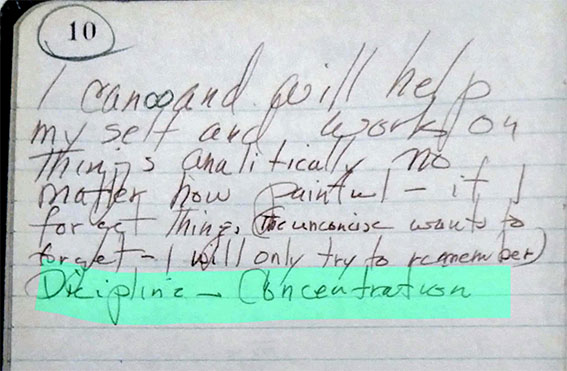 10
I can and will help
my self and work on
things analitically no
matter how painful – if I
forget things (the unconcise wants to
forget – I will only try to remember)
Dicipline – Concentration